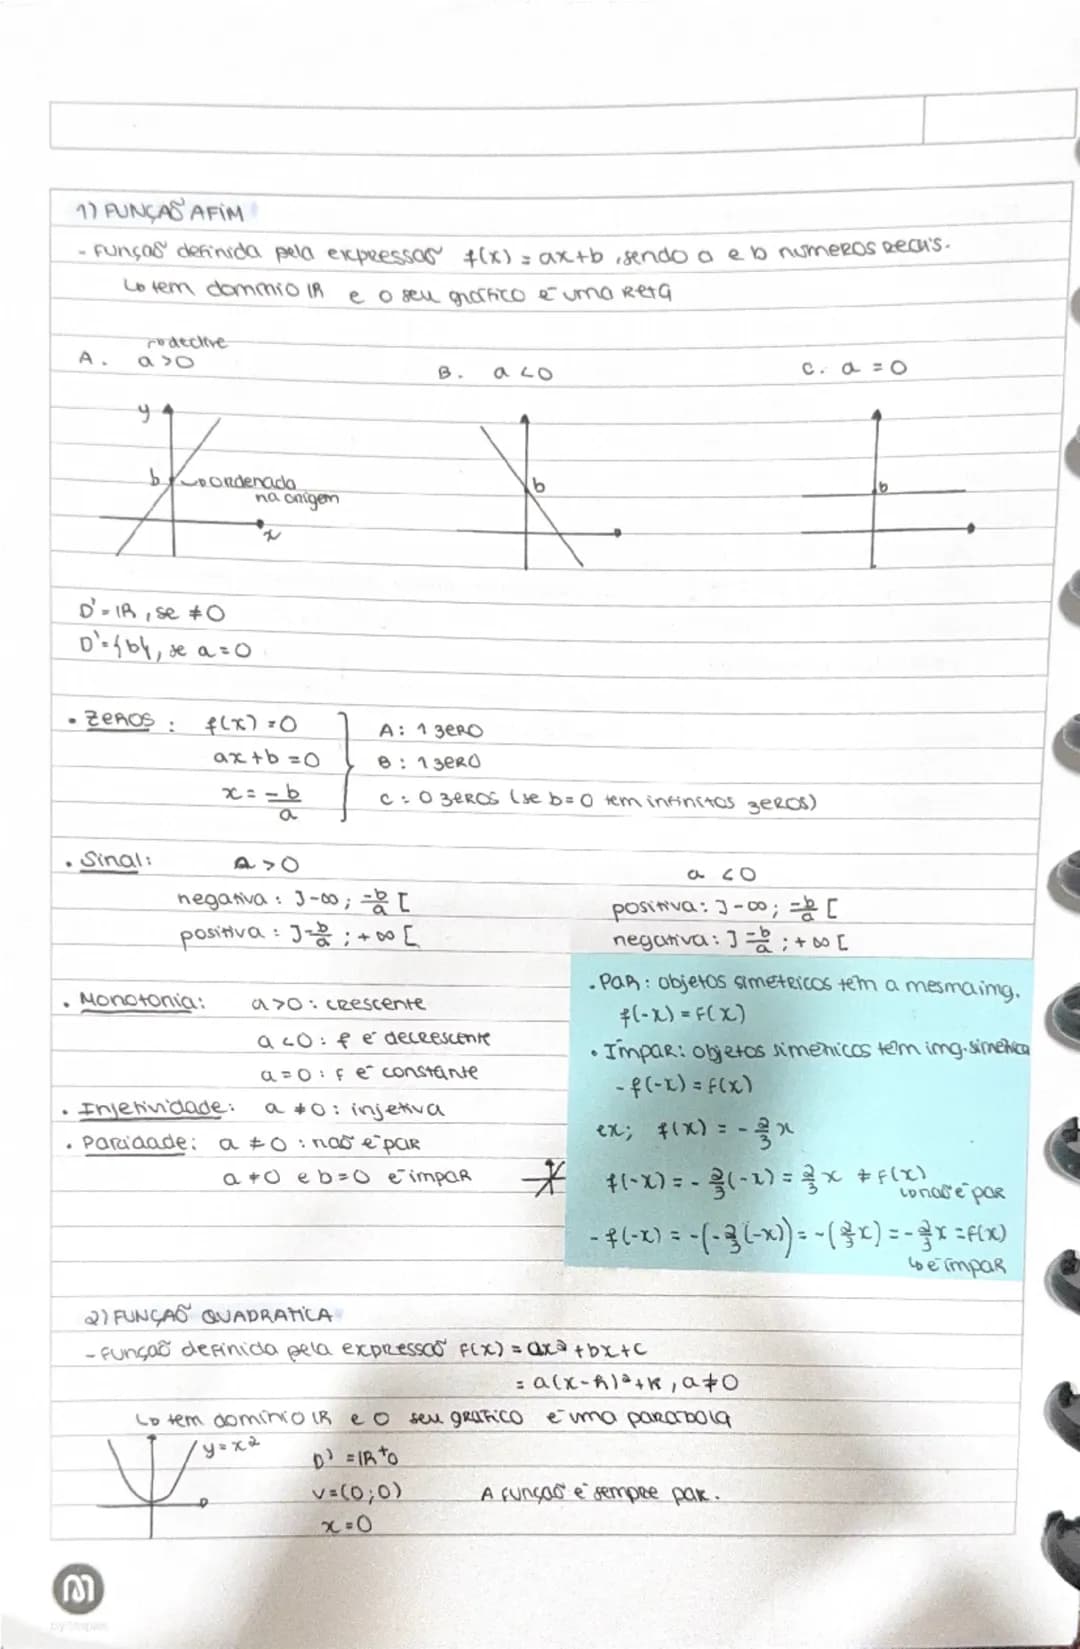 1) FUNÇÃO AFIM
- Função definida pela expressão f(x) = ax+b, sendo a e b números Reais.
↳ tem domínio IR e o seu gráfico é uma Reta
↱ declive
A. a>0
B. a<0
C. a = 0
y
b → ordenada
na origem
x
b
b
D' = IR, se ≠0
D' = {b}, se a=0
• Zeros: f(x) = 0
ax+b = 0
x = -b/a
A: 1 zero
B: 1 zero
C: 0 zeros (se b=0 tem infinitos zeros)
• Sinal: a > 0
negativa: ]-∞; -b/a [
positiva: ]-b/a ; +∞ [
a < 0
positiva: ]-∞; -b/a [
negativa: ]-b/a ; +∞ [
• Monotonia: a>0: crescente
a<0: f é decrescente
a=0: f é constante
• Injetividade: a ≠0: injetiva
• Paridade: a ≠ 0: não é par
a ≠0 e b=0 é ímpar
• Par: objetos simétricos têm a mesma img.
f(-x) = f(x)
• Ímpar: objetos simétricos têm img. simétrica
- f(-x) = f(x)
ex; f(x) = -2/3 x
f(-x) = - 2/3(-x) = 2/3 x ≠ f(x)
↳ não é par
- f(-x) = -(-2/3(-x)) = -(2/3x) = -2/3x = f(x)
↳ é ímpar
2) FUNÇÃO QUADRÁTICA
- Função definida pela expressão f(x) = ax²+bx+c
= a(x-h)²+k, a≠0
↳ tem domínio IR e o seu gráfico é uma parábola
y=x²
D' = IR⁺₀
V=(0;0)
x=0
A função é sempre par.
M